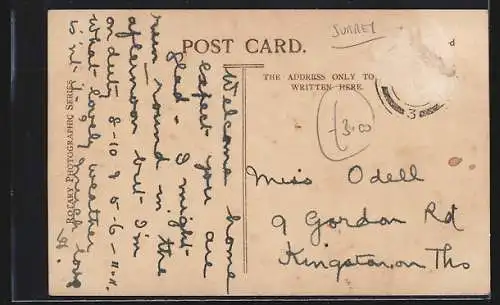 SURREY
POST CARD.
THE ADDRESS ONLY TO
WRITTEN HERE.
d
3
£3.00
Miss Odell
9 Gordon Rd
Kingston on Ths
ROTARY PHOTOGRAPHIC SERIES
Welcome home
expect you are
glad - I might
run round in the
afternoon but I'm
on duty 8-10 & 5-6-11.
What lovely weather
isn't it - much love